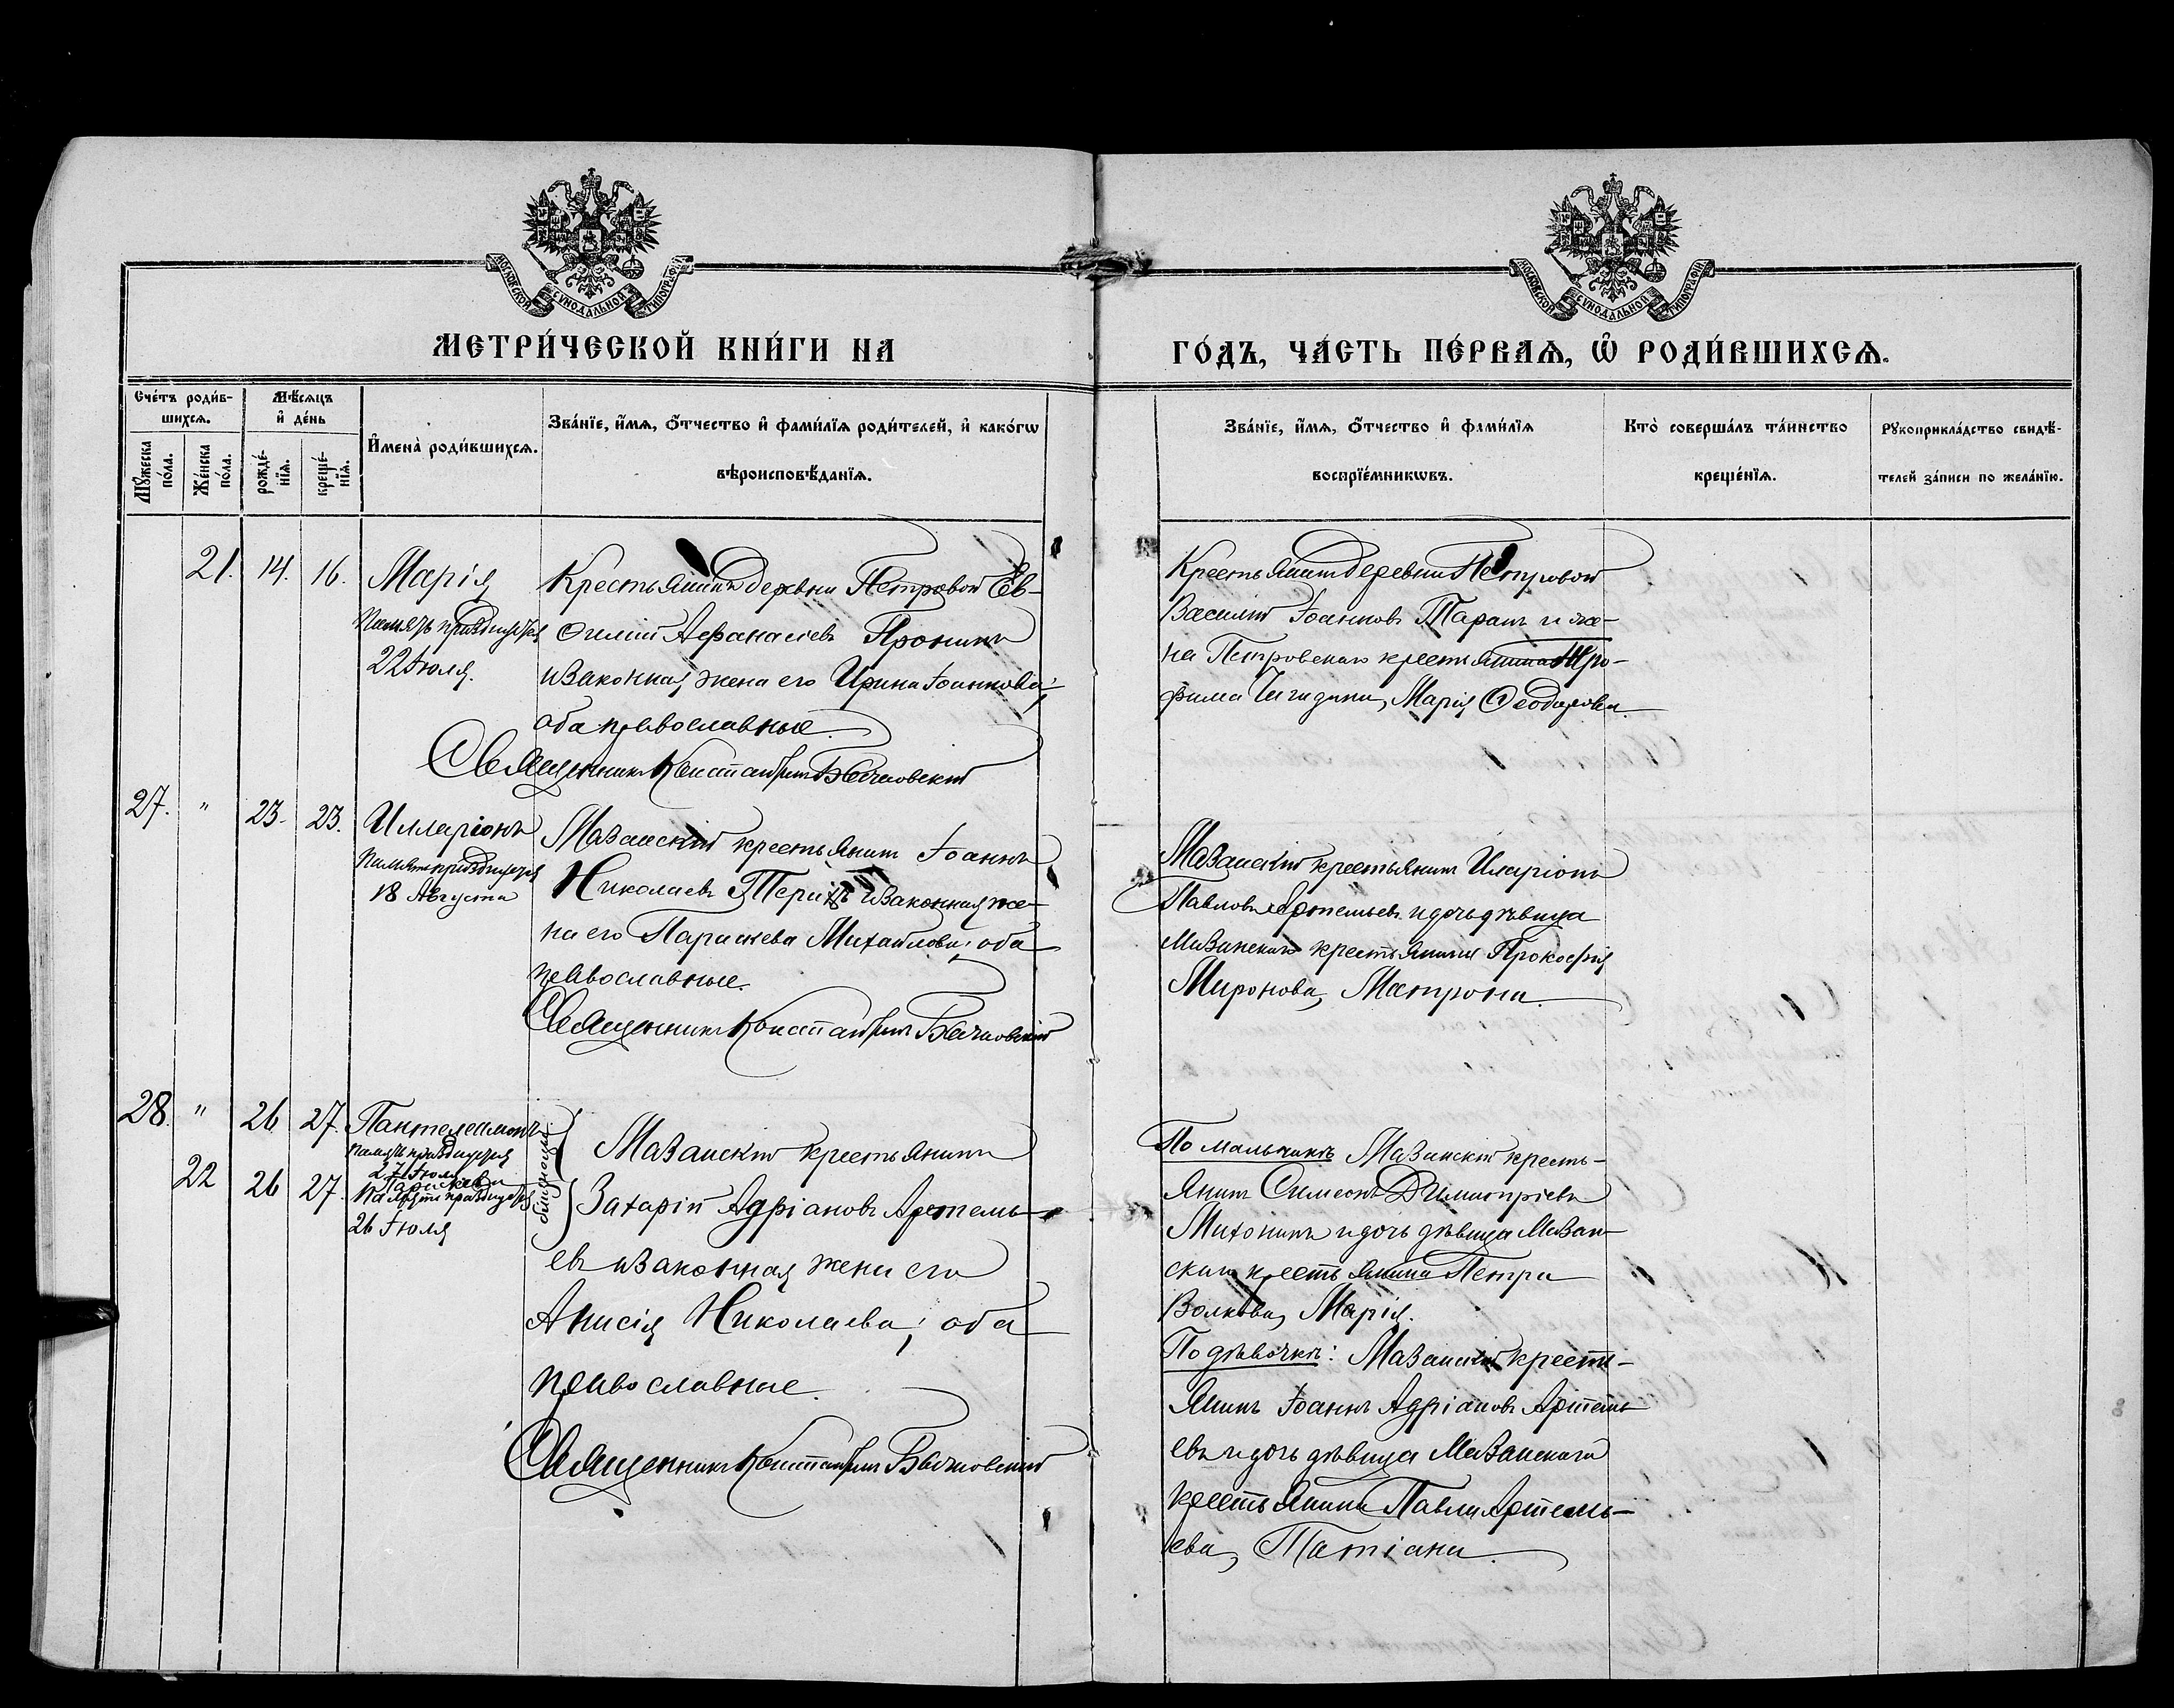 МОСКОВСКОЙ СѴНОДАЛЬНОЙ ТИПОГРАФІИ
МОСКОВСКОЙ СѴНОДАЛЬНОЙ ТИПОГРАФІИ
МЕТРИ́ЧЕСКОЙ КНИ́ГИ НА
ГО́ДЪ, ЧА́СТЬ ПЕ́РВАѦ, Ѡ҆ РОДИ́ВШИХСѦ.
Сче́тъ роди́в-
шихсѧ.
Мѣ́сѧцъ
и҆ де́нь
Мꙋ́жеска
по́ла.
Же́нска
по́ла.
рожде́-
нїѧ.
креще́-
нїѧ.
И҆мена̀ роди́вшихсѧ.
Зва́нїе, и҆́мѧ, ѻ҆́тчество и҆ фами́лїѧ роди́телей, и҆ како́гѡ
вѣроисповѣ́данїѧ.
Зва́нїе, и҆́мѧ, ѻ҆́тчество и҆ фами́лїѧ
воспрїе́мникѡвъ.
Кто̀ соверша́лъ та́инство
креще́нїѧ.
Рꙋкоприкла́дство свидѣ́-
телей за́писи по жела́нїю.
21. 14. 16. Марія
Память празднуется
22 Іюля.
Крестьянинъ деревни Петровой Ев-
фимій Афанасіевъ Пронинъ
и законная жена его Ирина Іоаннова;
оба православные.
Священникъ Константинъ
Крестьянинъ деревни Петровой
Василій Іоанновъ Таранъ и же-
на Петровскаго крестьянина Тро-
фима Марія Ѳеодорова.
27. " 23. 23. Илларіонъ
Память празднуется
18 Августа
Мазанскій крестьянинъ Іоаннъ
Николаевъ и законная же-
на его Параскева Михайлова; оба
православные.
Священникъ Константинъ
Мазанскій крестьянинъ Иларіонъ
Павловъ Артемьевъ и дочь дѣвица
Мазанскаго крестьянина Прокофія
Миронова, Матрона.
28. " 26 27. Пантелеимонъ
память празднуется
27 Іюля
22 26 27. Параскева
Память празднуется
26 Іюля
близнецы
Мазанскій крестьянинъ
Захарій Адріановъ Артемь-
евъ и законная жена его
Анисія Николаева; оба
православные.
Священникъ Константинъ
По мальчикѣ Мазанскій кресть-
янинъ Симеонъ Димитріевъ
Митонинъ и дочь дѣвица Мазан-
скаго крестьянина Петра
Волкова, Марія.
По дѣвочкѣ: Мазанскій кресть-
янинъ Іоаннъ Адріановъ Артемь-
евъ и дочь дѣвица Мазанскаго
крестьянина Павла Артемь-
ева, Татіана.